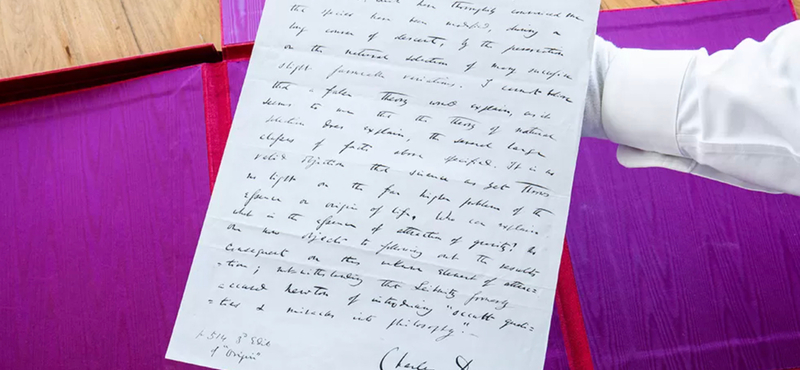 have thoroughly convinced me
that species have been modified, during a
long course of descent, by the preservation
or the natural selection of many successive
slight favourable variations. I cannot believe
that a false theory would explain, as it
seems to me that the theory of natural
selection does explain, the several large
classes of facts above specified. It is no
valid objection that science as yet throws
no light on the far higher problem of the
essence or origin of life. Who can explain
what is the essence of attraction of gravity? No
one now objects to following out the results
consequent on this unknown element of attrac-
=tion; notwithstanding that Leibnitz formerly
accused Newton of introducing "occult quali-
=ties & miracles into philosophy."—
p 514 3d Edit
of "Origin"
Charles D